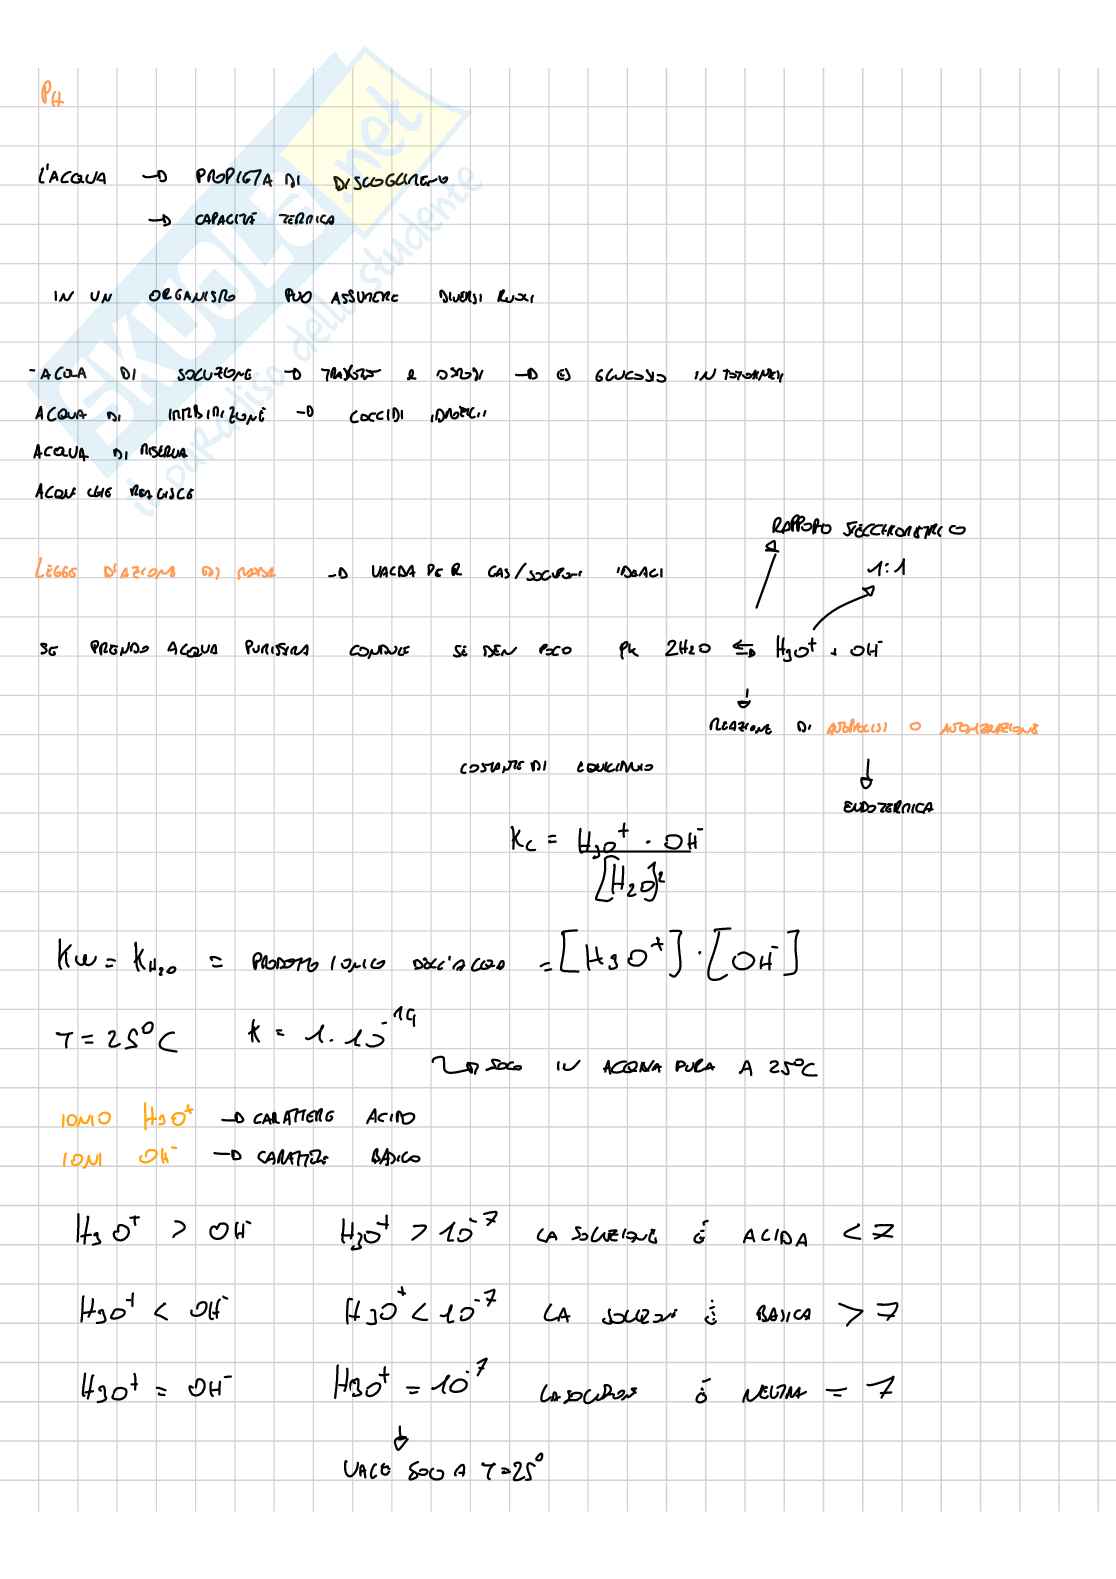 PH
L'ACQUA → PROPIETA DI DISCOGLIMENO
→ CAPACITÀ TERMICA
IN UN ORGANISMO PUO ASSUMERE DIVERSI RUOLI
- ACQUA DI SOLUZIONE → → ES GLUCOSIO IN
ACQUA DI IMBIBIZIONE → COLLIDI IDROFILI
ACQUA DI RISERVA
ACQUA CHE REAGISCE
RAPPORTO STECCHIOMETRICO
1:1
LEGGE D'AZIONE DI MASSA → VALIDA PER GAS/SOLUZIONI IDEALI
SE PRENDO ACQUA PURISSIMA CONDUCE SE BEN POCO PK 2H2O ⇆ H3O⁺ + OH⁻
REAZIONE DI AUTOPROLISI O AUTOIONIZZAZIONE
COSTANTE DI EQUILIBRIO
ENDOTERMICA
Kc = H3O⁺ · OH⁻ / [H2O]²
Kw = KH2O = PRODOTTO IONICO DELL'ACQUA = [H3O⁺] · [OH⁻]
T = 25°C K = 1 · 10⁻¹⁴
→ SOLO IN ACQUA PURA A 25°C
IONO H3O⁺ → CARATTERE ACIDO
IONI OH⁻ → CARATTERE BASICO
H3O⁺ > OH⁻ H3O⁺ > 10⁻⁷ LA SOLUZIONE è ACIDA < 7
H3O⁺ < OH⁻ H3O⁺ < 10⁻⁷ LA SOLUZIONE è BASICA > 7
H3O⁺ = OH⁻ H3O⁺ = 10⁻⁷ LA SOLUZIONE è NEUTRA = 7
VALE SOLO A T=25°
SKUOLA.net
il paradiso dello studente